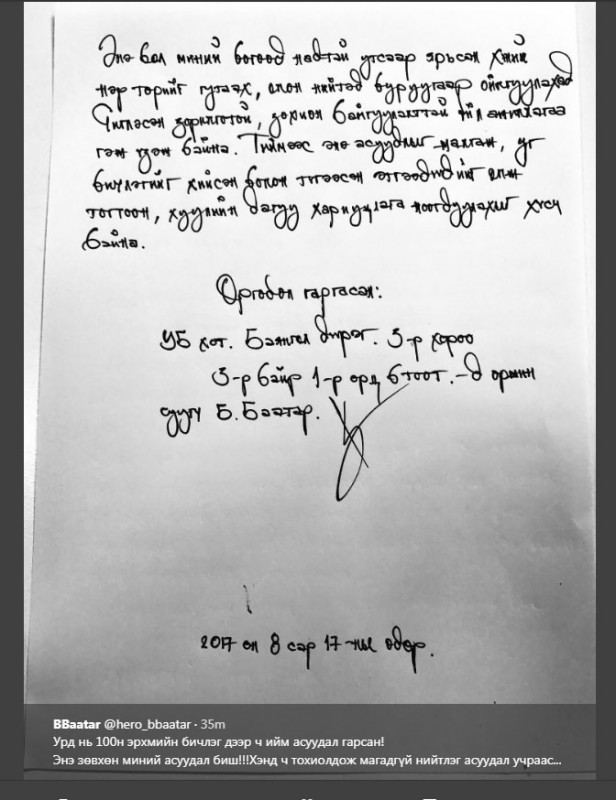 Энэ бол миний бөгөөд надтай утсаар ярьсан хүний
нэр төрийг гутаах, олон нийтэд буруугаар ойлгуулахад
чиглэсэн зорилготой, зохион байгуулалттай үйл ажиллагаа
гэж үзэж байна. Тиймээс энэ асуудлыг шалган, уг
бичлэгийг хийсэн болон түгээсэн этгээдүүдийг олж
тогтоон, хуулийн дагуу хариуцлага ногдуулахыг хүсч
байна.
Өргөдөл гаргасан:
УБ хот. Баянгол дүүрэг. 3-р хороо
3-р байр 1-р орц 6 тоот.-д оршин
суугч Б.Баатар.
2017 он 8 сар 17-ны өдөр.
BBaatar @hero_bbaatar · 35m
Урд нь 100н эрхмийн бичлэг дээр ч ийм асуудал гарсан!
Энэ зөвхөн миний асуудал биш!!!Хэнд ч тохиолдож магадгүй нийтлэг асуудал учраас...